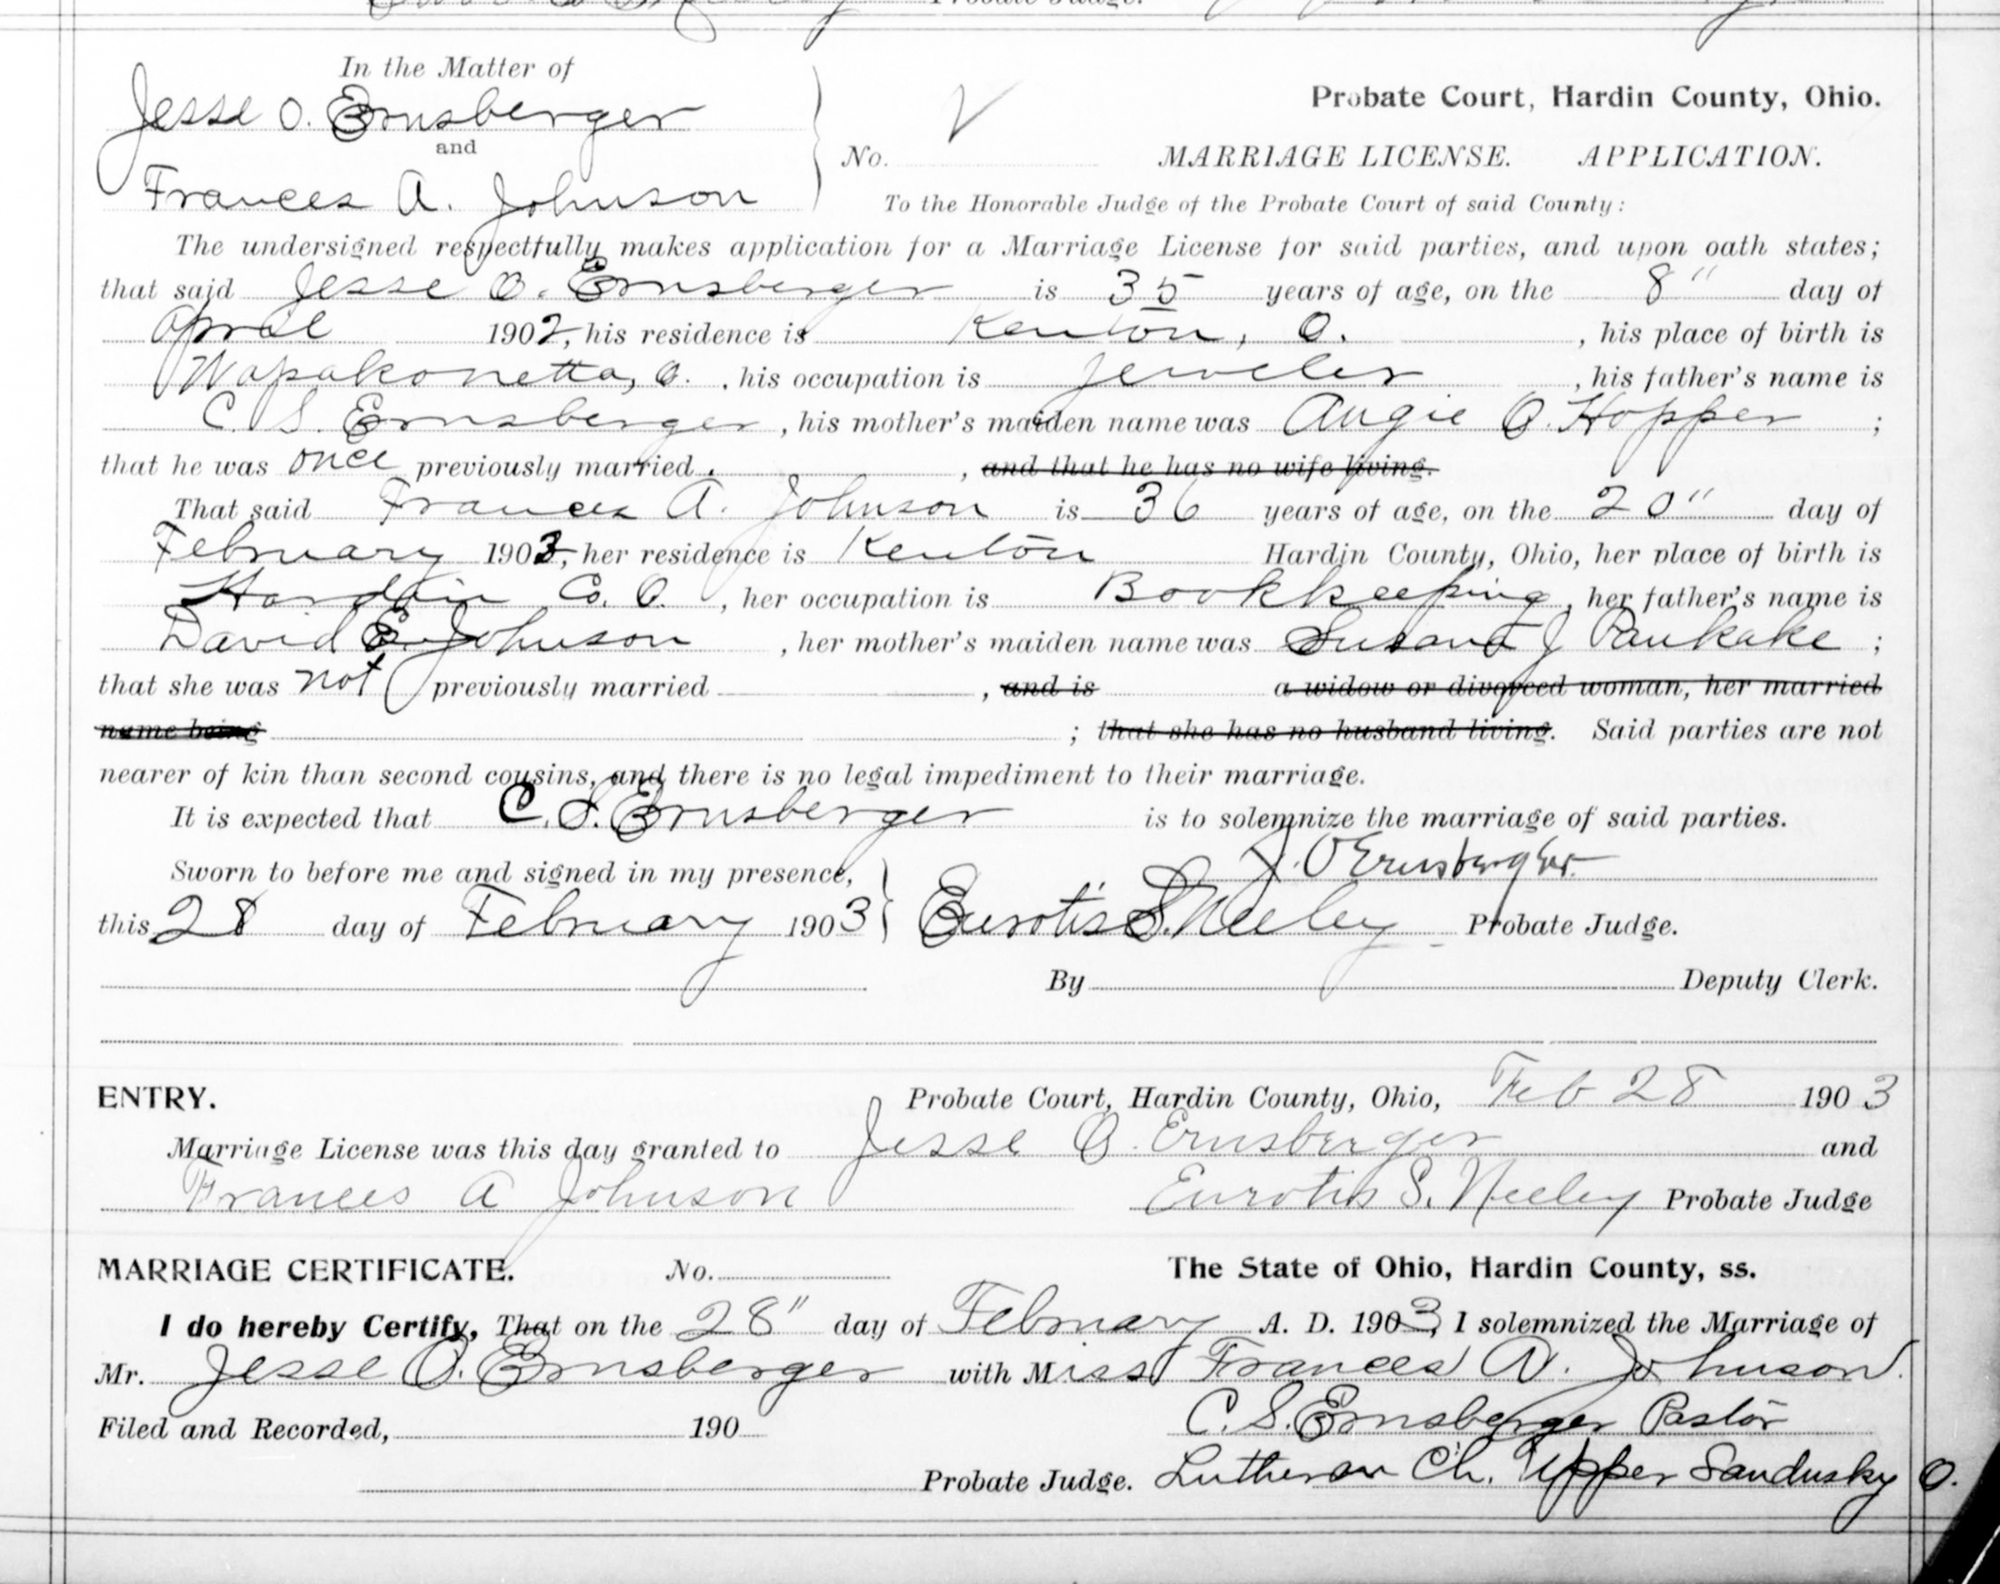 Probate Judge.
In the Matter of
Jesse O. Ernsberger
and
Frances A. Johnson
Probate Court, Hardin County, Ohio.
No. MARRIAGE LICENSE. APPLICATION.
To the Honorable Judge of the Probate Court of said County:
The undersigned respectfully makes application for a Marriage License for said parties, and upon oath states;
that said Jesse O. Ernsberger is 35 years of age, on the 8" day of
April 1902, his residence is Kenton, O. , his place of birth is
Wapakonetta, O. , his occupation is Jeweler , his father's name is
C. S. Ernsberger , his mother's maiden name was Angie O. Hopper ;
that he was once previously married . , and that he has no wife living.
That said Frances A. Johnson is 36 years of age, on the 20" day of
February 1903, her residence is Kenton Hardin County, Ohio, her place of birth is
Hardin Co. O. , her occupation is Bookkeeping , her father's name is
David E. Johnson , her mother's maiden name was Susana J Pankake ;
that she was not previously married , and is a widow or divorced woman, her married
name being ; that she has no husband living. Said parties are not
nearer of kin than second cousins, and there is no legal impediment to their marriage.
It is expected that C. S. Ernsberger is to solemnize the marriage of said parties.
J. O Ernsberger
Sworn to before me and signed in my presence,
this 28 day of February 1903 Eurotis S. Neeley Probate Judge.
By Deputy Clerk.
ENTRY. Probate Court, Hardin County, Ohio, Feb 28 1903
Marriage License was this day granted to Jesse O. Ernsberger and
Frances A Johnson Eurotis S. Neeley Probate Judge
MARRIAGE CERTIFICATE. No. The State of Ohio, Hardin County, ss.
I do hereby Certify, That on the 28" day of February A. D. 1903, I solemnized the Marriage of
Mr. Jesse O. Ernsberger with Miss Frances A. Johnson.
Filed and Recorded, 190 C. S. Ernsberger Pastor
Probate Judge. Lutheran Ch. Upper Sandusky O.